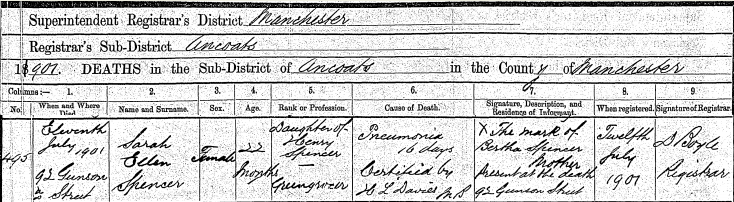 Superintendent Registrar's District Manchester
Registrar's Sub-District Ancoats
1901. DEATHS in the Sub-District of Ancoats in the County of Manchester
Columns:— 1. 2. 3. 4. 5. 6. 7. 8. 9
No. When and Where Died. Name and Surname. Sex. Age. Rank or Profession. Cause of Death. Signature, Description, and Residence of Informant. When registered. Signature of Registrar.
495
Eleventh
July 1901
92 Gunson
Street
Sarah
Ellen
Spencer
Female
22
Months
Daughter of
Henry
Spencer
—
Greengrocer
Pneumonia
16 days
Certified by
H L Davies M B
X The mark of
Bertha Spencer
Mother
Present at the death
92 Gunson Street
Twelfth
July
1901
D Boyle
Registrar